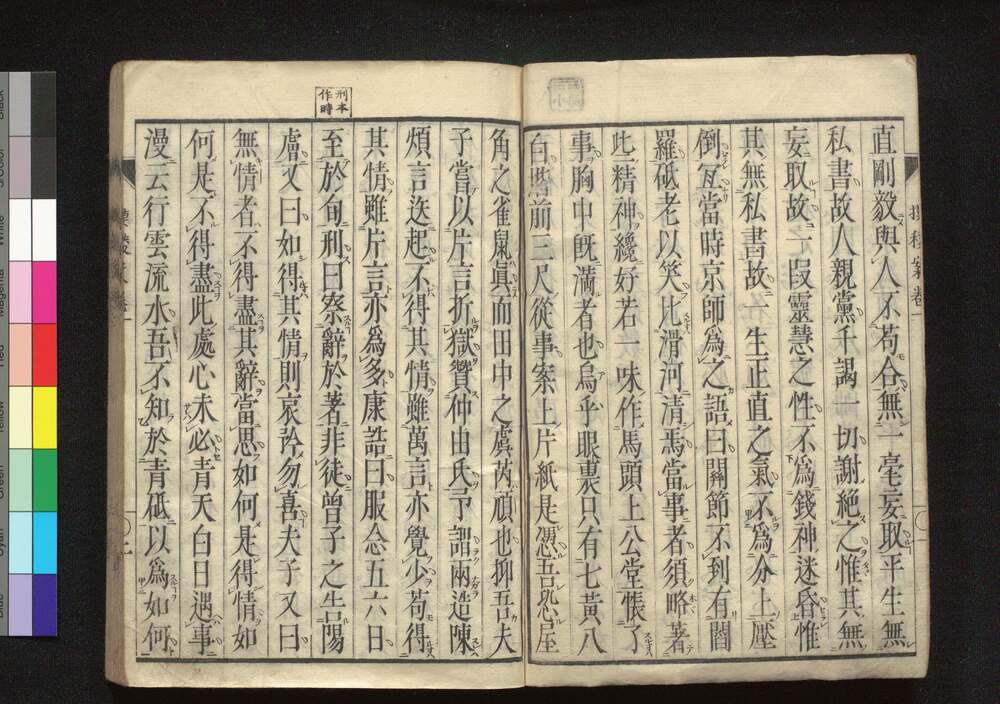 直剛毅與人不苟合無一毫妄取平生無
私書故人親黨千謁一切謝絕之惟其無
妄取故一段靈慧之性不爲錢神迷昏惟
其無私書故一生正直之氣不爲分上壓
倒冝當時京師爲之語曰關節不到有閻
羅砥老以笑比滑河清焉當事者須略著
此精神纔好若一味作馬頭上公堂悵了
事胸中旣滿者也烏乎眼裏只有七黃八
白堦前三尺從事案上片紙是憑吾恐屋
角之雀鼠眞而田中之虞芮頑也抑吾夫
子嘗以片言折獄贊仲由氏予謂兩造陳
煩言迭起不得其情雖萬言亦覺少苟得
其情雖片言亦爲多康誥曰服念五六日
至於旬刑曰察辭於差非徒曾子之告陽
膚又曰如得其情則哀矜勿喜夫子又曰
無情者不得盡其辭當思如何是得情如
何是不得盡此處心未必青天白日遇事
漫云行雲流水吾不知於青砥以爲如何
刑本
作時